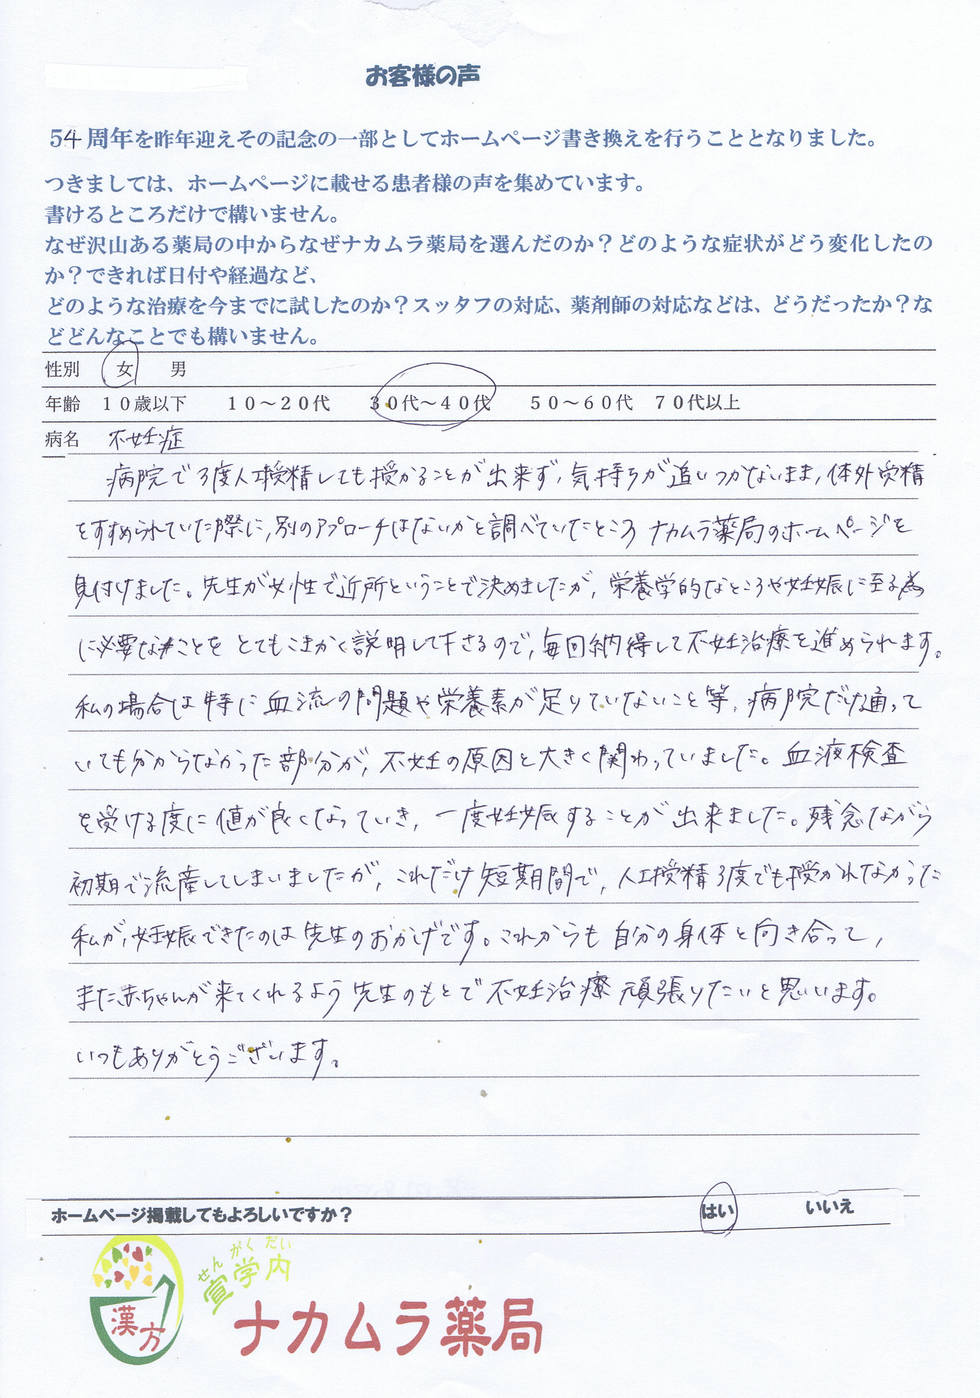 お客様の声
54周年を昨年迎えその記念の一部としてホームページ書き換えを行うこととなりました。
つきましては、ホームページに載せる患者様の声を集めています。
書けるところだけで構いません。
なぜ沢山ある薬局の中からなぜナカムラ薬局を選んだのか？どのような症状がどう変化したの
か？できれば日付や経過など、
どのような治療を今までに試したのか？スッタフの対応、薬剤師の対応などは、どうだったか？な
どどんなことでも構いません。
性別 女 男
年齢 １０歳以下 １０～２０代 ３０代～４０代 ５０～６０代 ７０代以上
病名 不妊症
病院で3度人工授精しても授かることが出来ず、気持ちが追いつかないまま、体外受精
をすすめられていた際に、別のアプローチはないかと調べていたところ ナカムラ薬局のホームページを
見付けました。先生が女性で近所ということで決めましたが、栄養学的なところや妊娠に至る為
に必要なことを とてもこまかく説明して下さるので、毎回納得して不妊治療を進められます。
私の場合は特に血流の問題や栄養素が足りていないこと等、病院だけ通って
いても分からなかった部分が、不妊の原因と大きく関わっていました。血液検査
を受ける度に値が良くなっていき、一度妊娠することが出来ました。残念ながら
初期で流産してしまいましたが、これだけ短期間で、人工授精3度でも授かれなかった
私が、妊娠できたのは先生のおかげです。これからも自分の身体と向き合って、
また赤ちゃんが来てくれるよう先生のもとで不妊治療頑張りたいと思います。
いつもありがとうございます。
ホームページ掲載してもよろしいですか？ はい いいえ
せんがくだい
宣学内
漢方
ナカムラ薬局